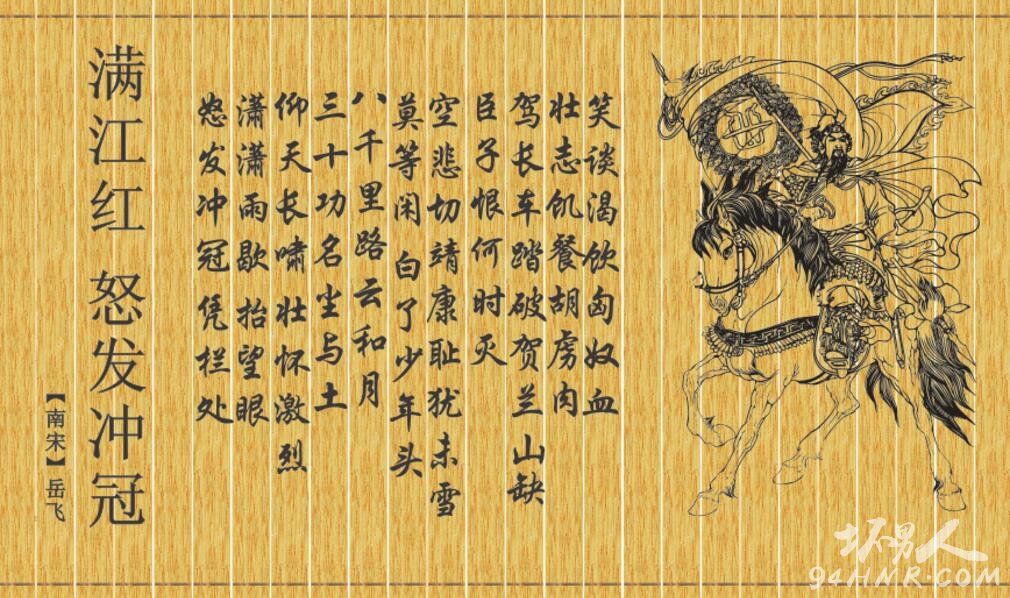 满江红 怒发冲冠
【南宋】岳飞
怒发冲冠凭栏处
潇潇雨歇抬望眼
仰天长啸壮怀激烈
三十功名尘与土
八千里路云和月
莫等闲 白了少年头
空悲切靖康耻犹未雪
臣子恨何时灭
驾长车踏破贺兰山缺
壮志饥餐胡虏肉
笑谈渴饮匈奴血
坏男人
94HNR.COM